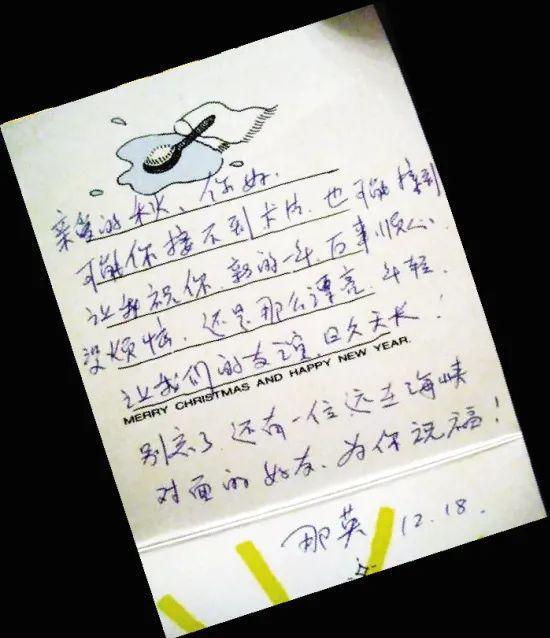 亲爱的秋、你好.
可能你接不到卡片.也可能接到
让我祝你.新的一年.百事顺心.
没烦恼.还是那么漂亮.年轻.
让我们的友谊.日久天长!
MERRY CHRISTMAS AND HAPPY NEW YEAR.
别忘了.还有一位远在海峡
对面的好友.为你祝福!
那英 12.18.